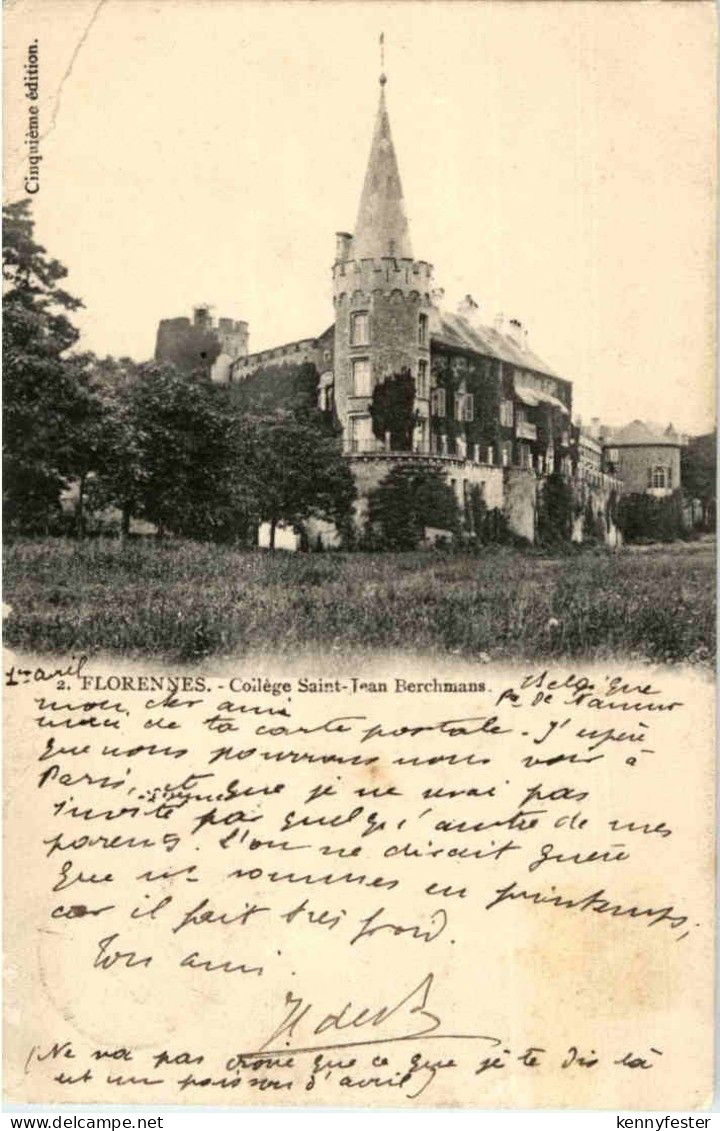 Cinquième édition.
2. FLORENNES. - Collège Saint-Jean Berchmans.
1er avril
Belgique
Pce de Namur
mon cher ami
merci de ta carte postale. J'espère
que nous pourrons nous voir à
Paris, et que je ne serai pas
invité par quelqu'autre de mes
parents. L'on ne dirait guère
que nous sommes en printemps,
car il fait très froid.
Ton ami.
H de
(Ne va pas croire que ce que je te dis là
est un poisson d'avril)
delcampe.net
kennyfester